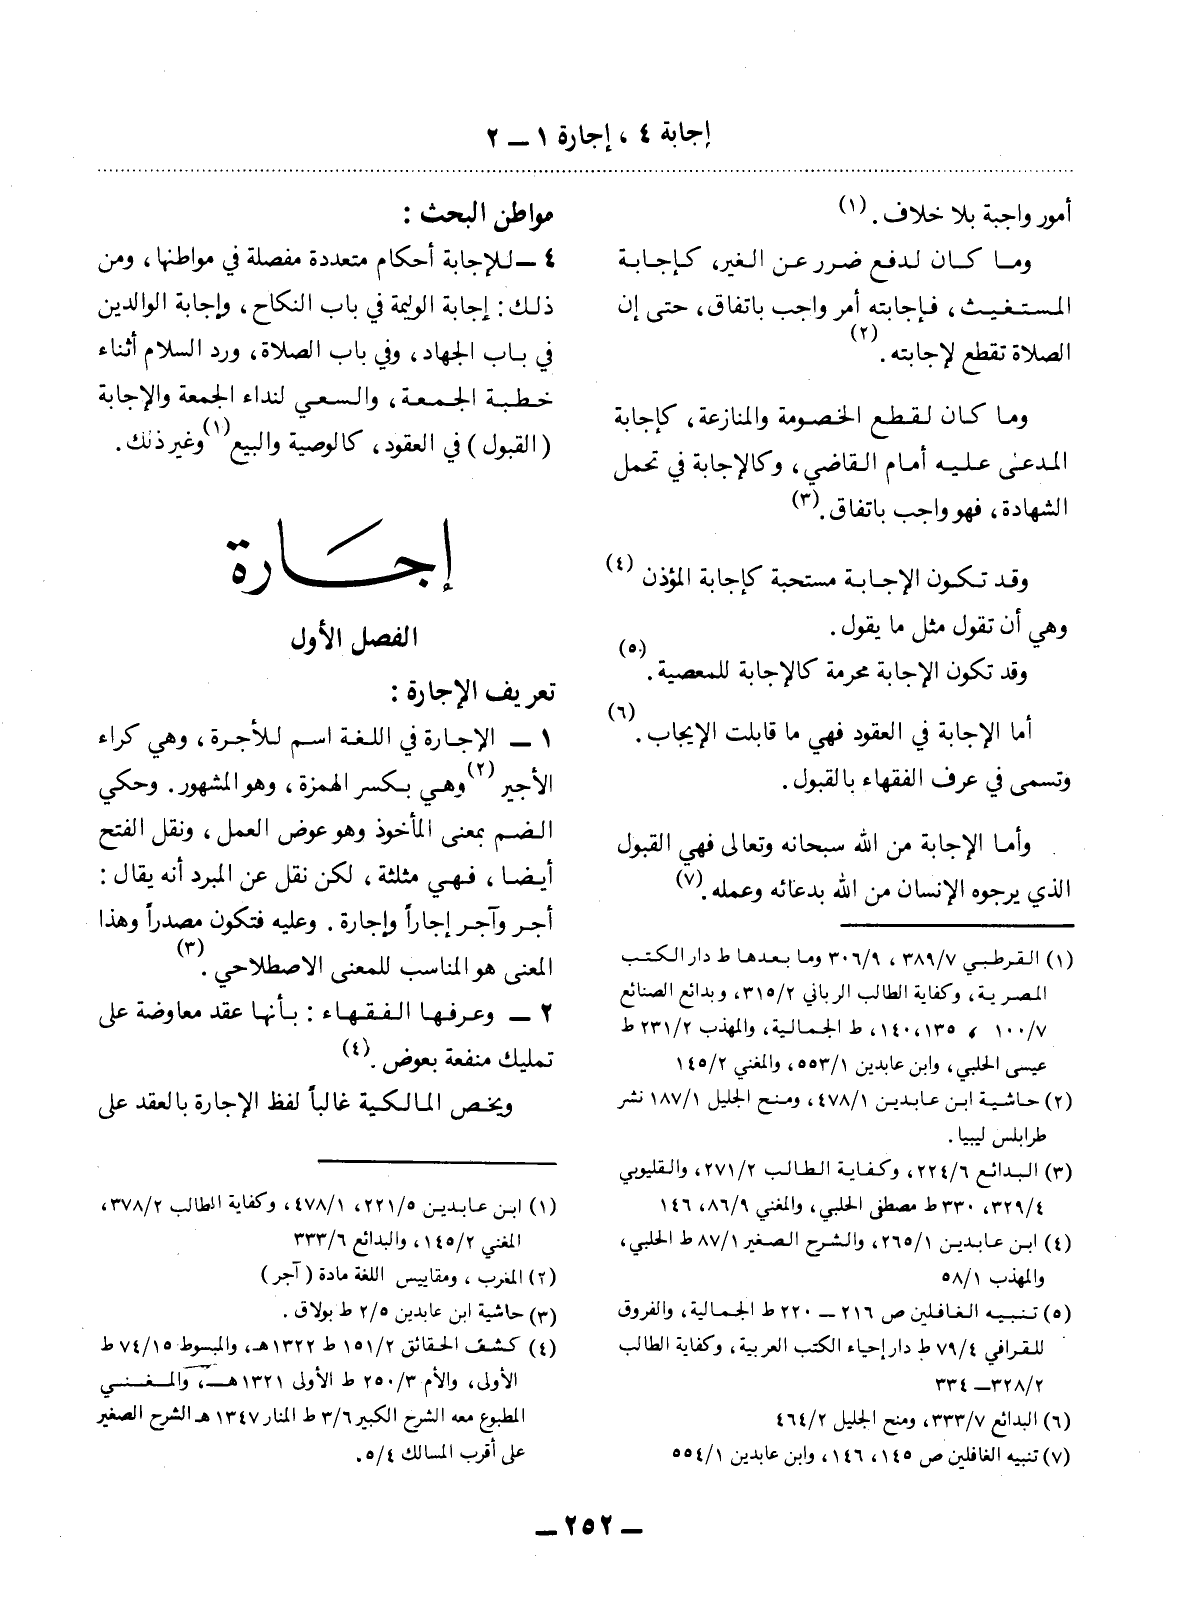 إجابة ٤ ، إجارة ١ ــ ٢
أمور واجبة بلا خلاف . (١)
وما كان لدفع ضرر عن الغير، كإجابة
المستغيث ، فإجابته أمر واجب باتفاق ، حتى إن
الصلاة تقطع لإجابته . (٢)
وما كان لقطع الخصومة والمنازعة ، كإجابة
المدعى عليه أمام القاضي ، وكالإجابة في تحمل
الشهادة ، فهو واجب باتفاق . (٣)
وقد تكون الإجابة مستحبة كإجابة المؤذن (٤)
وهي أن تقول مثل ما يقول .
وقد تكون الإجابة محرمة كالإجابة للمعصية . (٥)
أما الإجابة في العقود فهي ما قابلت الإيجاب . (٦)
وتسمى في عرف الفقهاء بالقبول .
وأما الإجابة من الله سبحانه وتعالى فهي القبول
الذي يرجوه الإنسان من الله بدعائه وعمله . (٧)
(١) القرطبي ٣٨٩/٧ ، ٣٠٦/٩ وما بعدها ط دار الكتب
المصرية ، وكفاية الطالب الرباني ٣١٥/٢، وبدائع الصنائع
١٠٠/٧ ، ١٣٥ ،١٤٠، ط الجمالية ، والمهذب ٢٣١/٢ ط
عيسى الحلبي ، وابن عابدين ٥٥٣/١، والمغني ١٤٥/٢
(٢) حاشية ابن عابدين ٤٧٨/١ ، ومنح الجليل ١٨٧/١ نشر
طرابلس ليبيا .
(٣) البدائع ٢٢٤/٦ ، وكفاية الطالب ٢٧١/٢ ، والقليوبي
٣٢٩/٤، ٣٣٠ ط مصطفى الحلبي ، والمغني ٨٦/٩، ١٤٦
(٤) ابن عابدين ٢٦٥/١ ، والشرح الصغير ٨٧/١ ط الحلبي ،
والمهذب ٥٨/١
(٥) تنبيه الغافلين ص ٢١٦ ــ ٢٢٠ ط الجمالية ، والفروق
للقرافي ٧٩/٤ ط دار إحياء الكتب العربية ، وكفاية الطالب
٣٢٨/٢ــ ٣٣٤
(٦) البدائع ٣٣٣/٧، ومنح الجليل ٤٦٤/٢
(٧) تنبيه الغافلين ص ١٤٥، ١٤٦، وابن عابدين ٥٥٤/١
مواطن البحث :
٤ ــ للإجابة أحكام متعددة مفصلة في مواطنها ، ومن
ذلك : إجابة الوليمة في باب النكاح ، وإجابة الوالدين
في باب الجهاد ، وفي باب الصلاة ، ورد السلام أثناء
خطبة الجمعة ، والسعي لنداء الجمعة والإجابة
(القبول) في العقود ، كالوصية والبيع (١) وغير ذلك .
إجارة
الفصل الأول
تعريف الإجارة :
١ ــ الإجارة في اللغة اسم للأجرة ، وهي كراء
الأجير (٢) وهي بكسر الهمزة ، وهو المشهور . وحكي
الضم بمعنى المأخوذ وهو عوض العمل ، ونقل الفتح
أيضا ، فهي مثلثة ، لكن نقل عن المبرد أنه يقال :
أجر وآجر إجاراً وإجارة . وعليه فتكون مصدراً وهذا
المعنى هو المناسب للمعنى الاصطلاحي . (٣)
٢ ــ وعرفها الفقهاء : بأنها عقد معاوضة على
تمليك منفعة بعوض . (٤)
ويخص المالكية غالباً لفظ الإجارة بالعقد على
(١) ابن عابدين ٢٢١/٥، ٤٧٨/١، وكفاية الطالب ٣٧٨/٢،
المغني ١٤٥/٢ ، والبدائع ٣٣٣/٦
(٢) المغرب ، ومقاييس اللغة مادة ( آجر )
(٣) حاشية ابن عابدين ٢/٥ ط بولاق .
(٤) كشف الحقائق ١٥١/٢ ط ١٣٢٢ هـ ، والمبسوط ٧٤/١٥ ط
الأولى ، والأم ٢٥٠/٣ ط الأولى ١٣٢١ هـ ، والمغني
المطبوع معه الشرح الكبير ٣/٦ ط المنار ١٣٤٧ هـ الشرح الصغير
على أقرب المسالك ٥/٤ .
ــ ٢٥٢ ــ